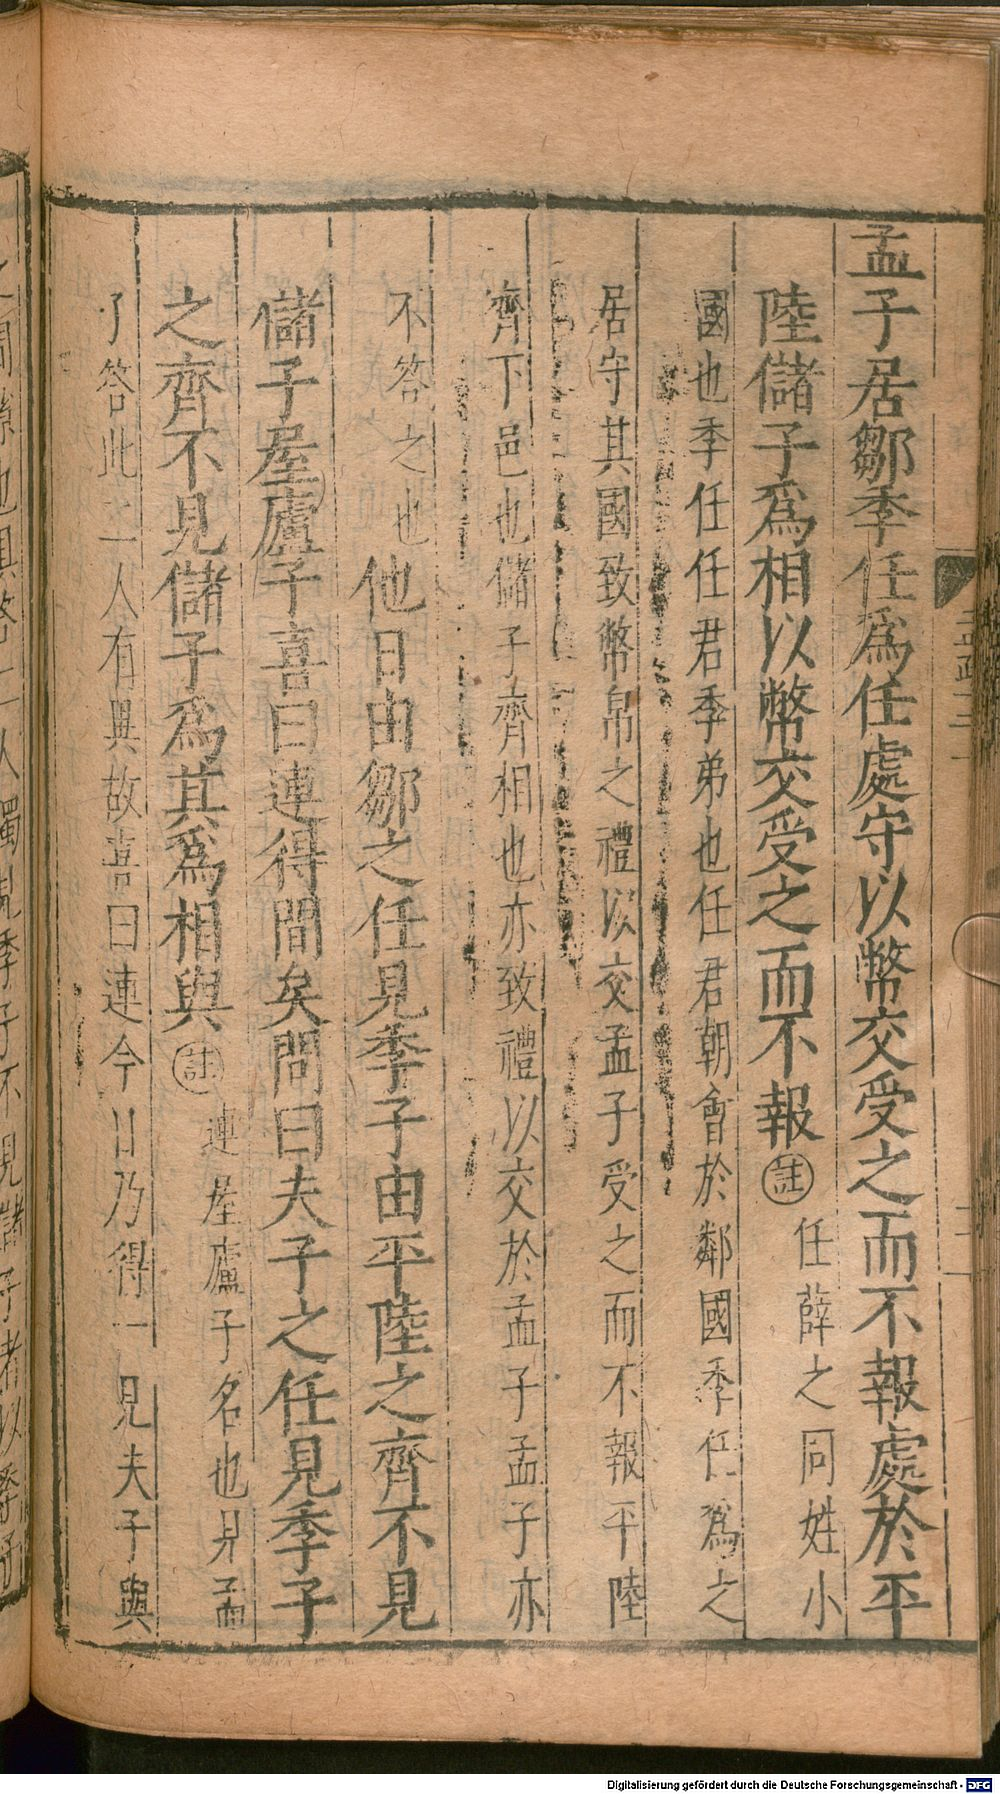 孟子居鄒季任爲任處守以幣交受之而不報處於平
陸儲子爲相以幣交受之而不報註任薛之同姓小
國也季任任君季弟也任君朝會於鄰國季任爲之
居守其國致幣帛之禮以交孟子受之而不報平陸
齊下邑也儲子齊相也亦致禮以交於孟子孟子亦
不答之也他日由鄒之任見季子由平陸之齊不見
儲子屋廬子喜曰連得間矣問曰夫子之任見季子
之齊不見儲子爲其爲相與註連屋廬子名也見孟
子答此二人有異故喜曰連今日乃得一見夫子與
Digitalisierung gefördert durch die Deutsche Forschungsgemeinschaft - DFG